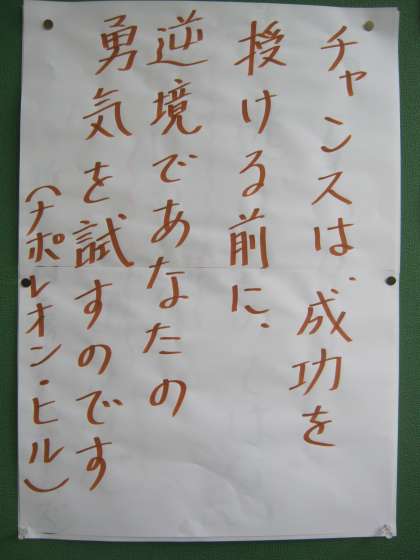 チャンスは、成功を
授ける前に、
逆境であなたの
勇気を試すのです
（ナポレオン・ヒル）